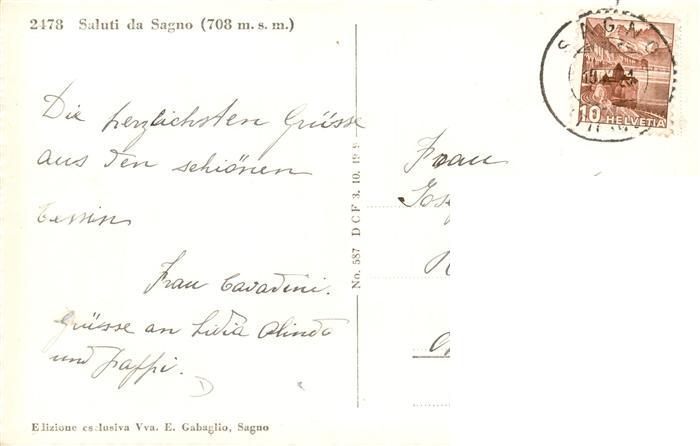 2478 Saluti da Sagno (708 m. s. m.)
Die herzlichsten Grüsse
aus den schiönen
Tessin
Frau Cavadini.
Grüsse an Lidia Olindo
und
Edizione esclusiva Vva. E. Gabaglio, Sagno
No. 587 DCF 3. 10. 19
SAGNO
10 HELVETIA
Frau